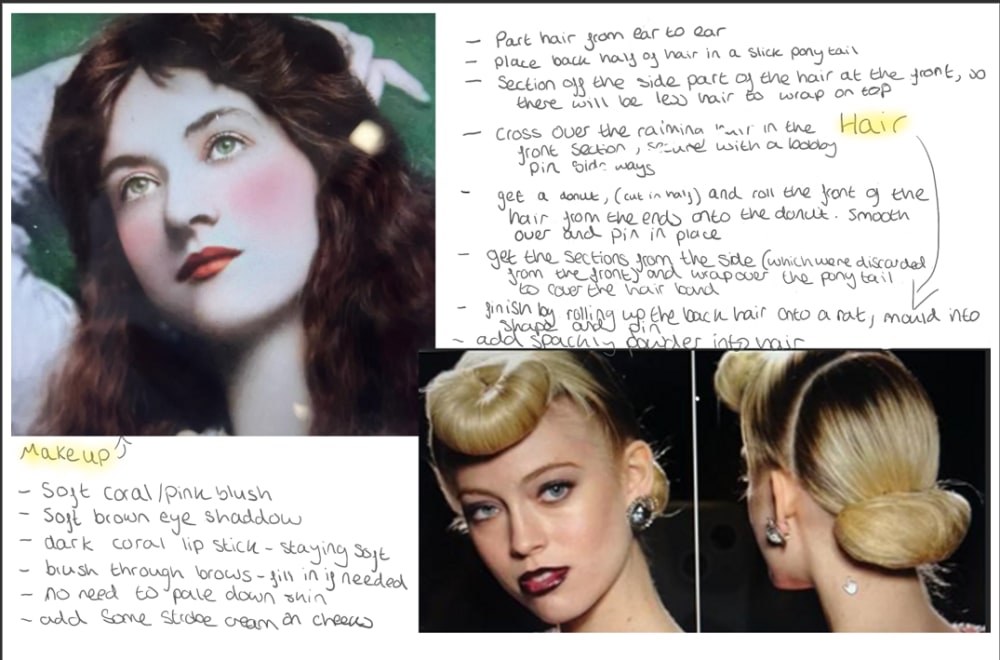 - Part hair from ear to ear
- Place back half of hair in a slick pony tail
- Section off the side part of the hair at the front, so
there will be less hair to wrap on top
- Cross over the raimina hair in the
front section, secured with a bobby
pin side ways
Hair
- get a donut, (cut in half) and roll the font of the
hair from the ends onto the donut. Smooth
over and pin in place
- get the sections from the side (which were discarded
from the front) and wrap over the pony tail
to cover the hair band
- finish by rolling up the back hair onto a rat, mould into
shape and pin
- add sparkly powder into hair
Makeup
- Soft coral/pink blush
- Soft brown eye shaddow
- dark coral lip stick - staying soft
- brush through brows - fill in if needed
- no need to pale down skin
- add some strobe cream on cheeks